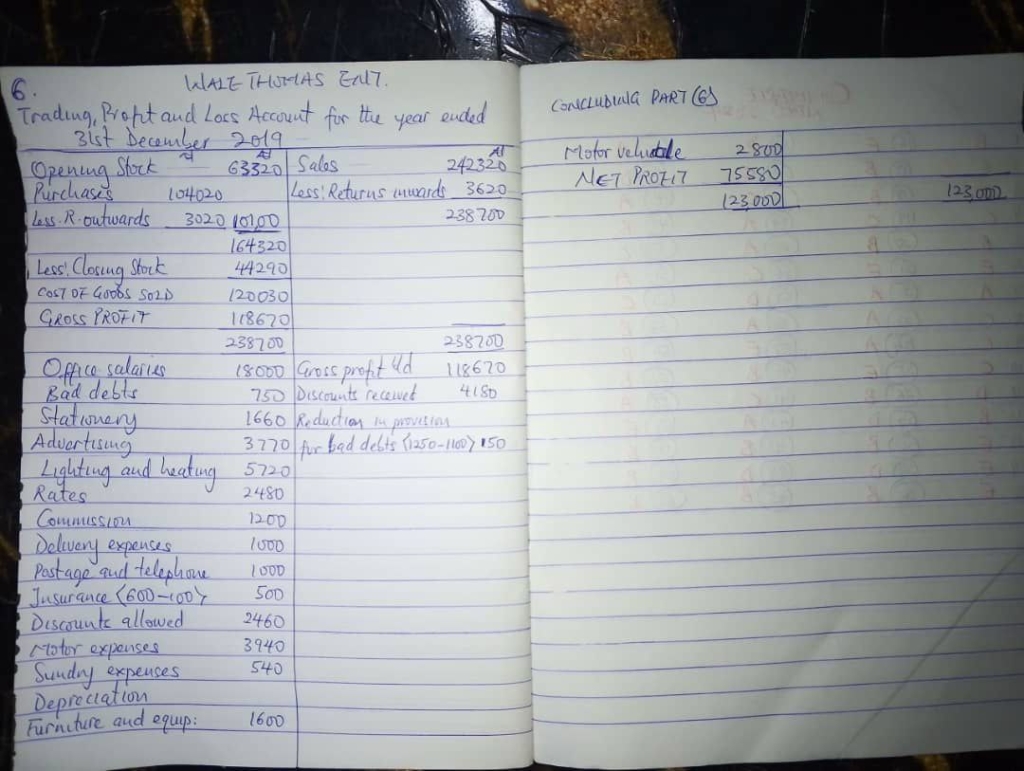 6. WALE THOMAS ENT.
Trading, Profit and Loss Account for the year ended
31st December 2019
Opening Stock 63320 Sales 242320
Purchases 104020 Less: Returns inwards 3620
Less: R. outwards 3020 10100 238700
164320
Less: Closing Stock 44290
COST OF GOODS SOLD 120030
GROSS PROFIT 118670
238700 238700
Office salaries 18000 Gross profit b/d 118670
Bad debts 750 Discounts received 4180
Stationery 1660 Reduction in provision
Advertising 3770 for bad debts <1250-1100> 150
Lighting and heating 5720
Rates 2480
Commission 1200
Delivery expenses 1000
Postage and telephone 1000
Insurance <600-100> 500
Discounts allowed 2460
Motor expenses 3940
Sundry expenses 540
Depreciation
Furniture and equip: 1600
CONCLUDING PART (6)
Motor vehicle 2800
NET PROFIT 75580
123,000 123,000